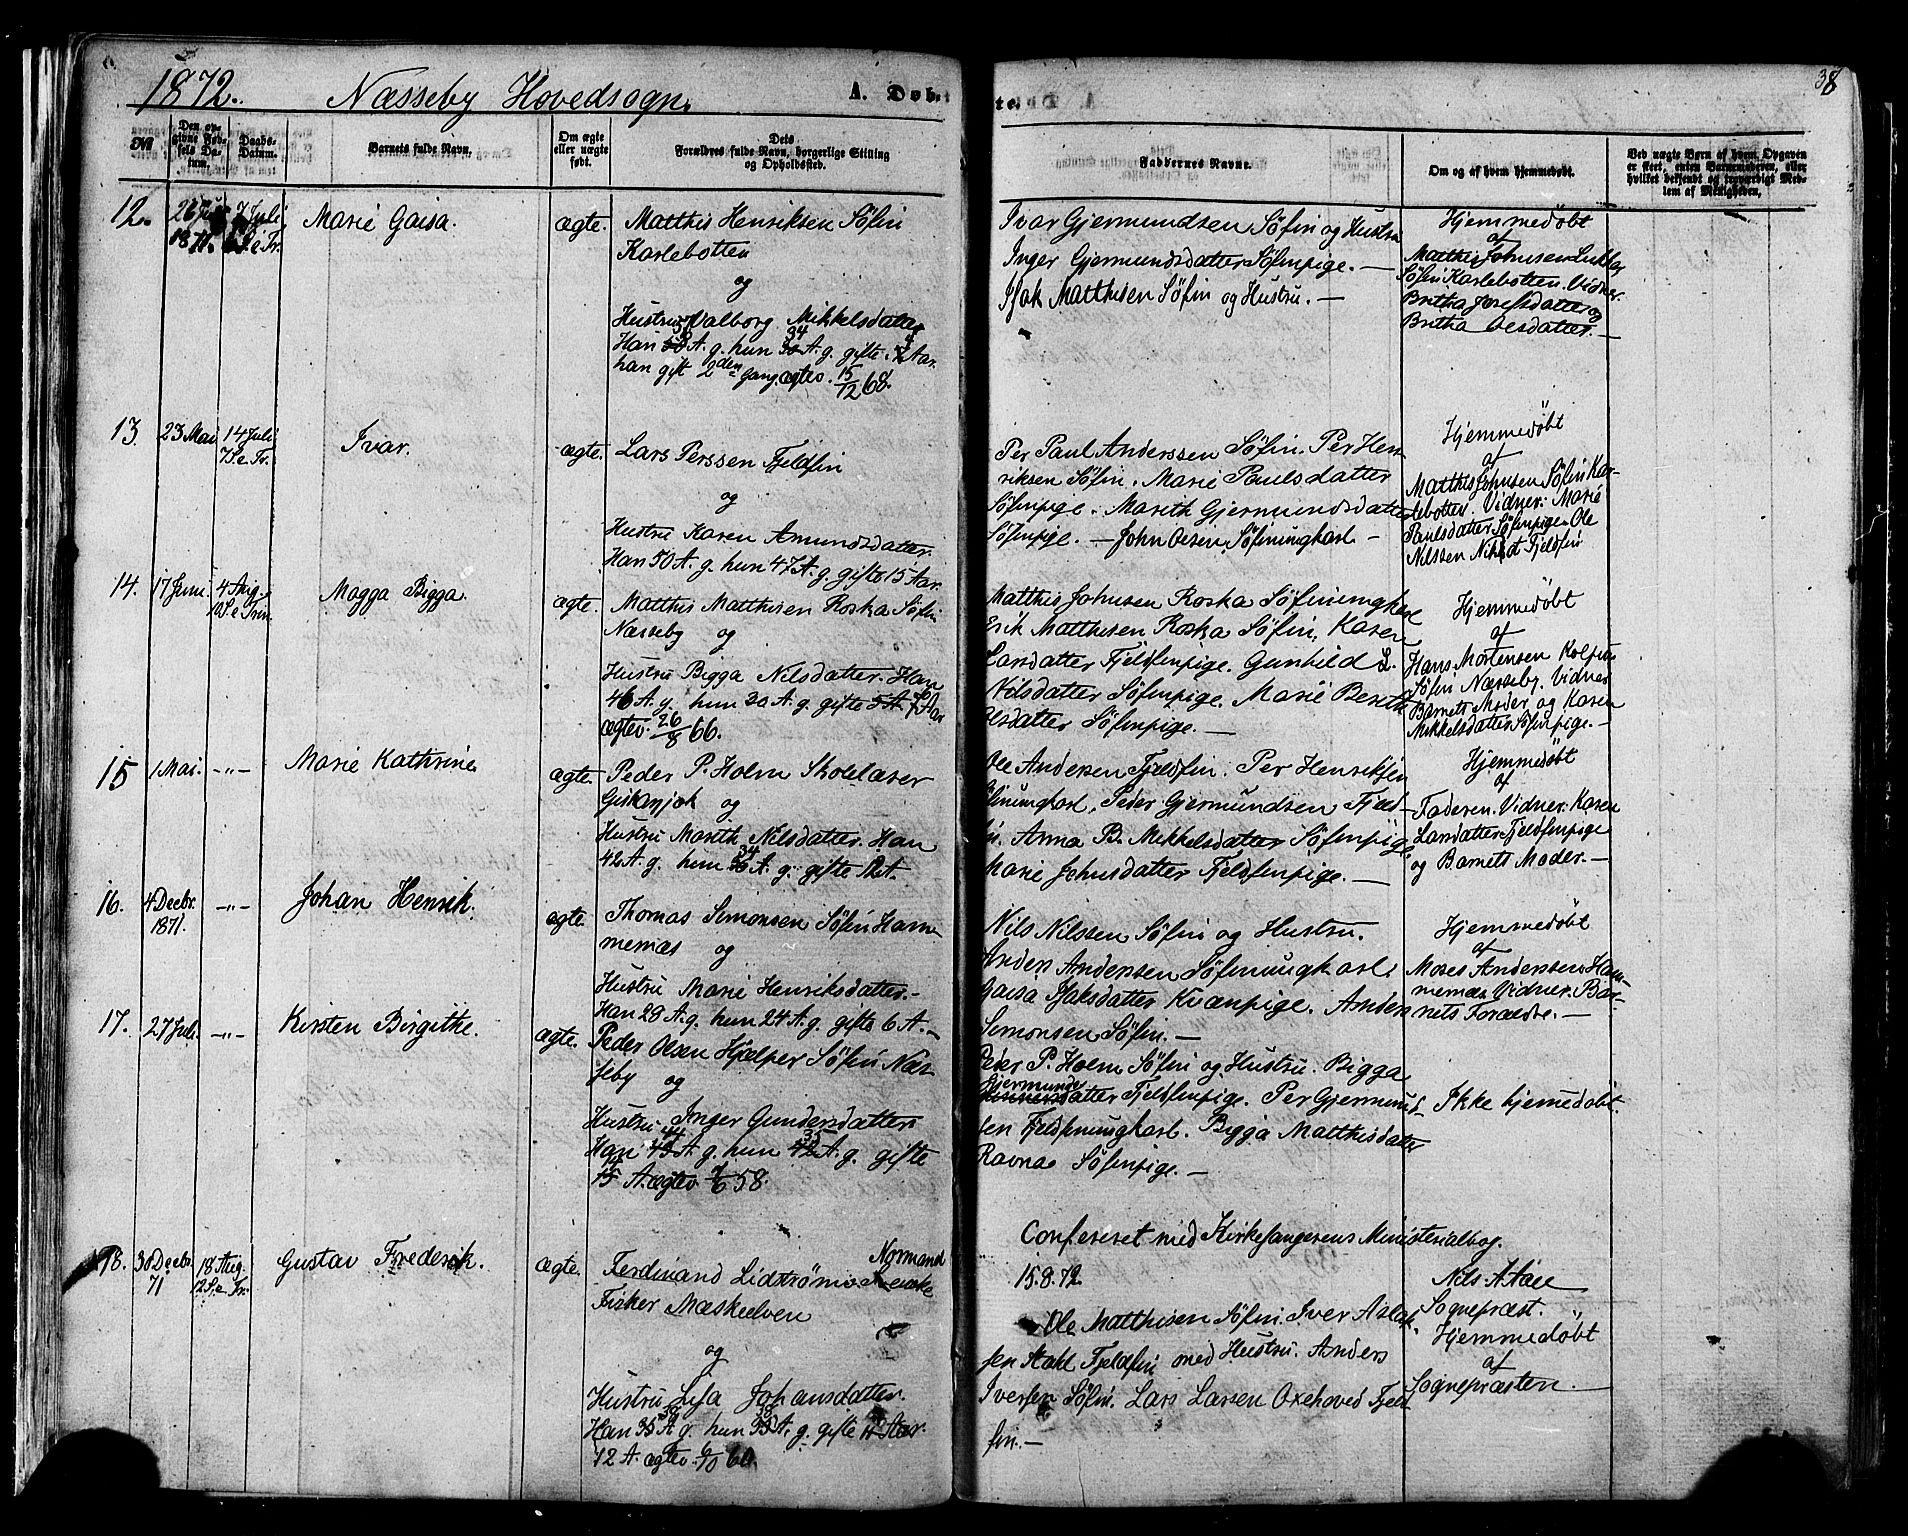 1872. Næsseby Hovedsogn. A. Døb-
te. 38
№
Den op-
givne Fød-
sels Da-
tum.
Daabs-
Datum.
Barnets fulde Navn.
Om ægte
eller uægte
født.
Dets
Forældres fulde Navn, borgerlige Stilling
og Opholdssted.
Faddernes Navne.
Om og af hvem hjemmedøbt.
Ved uægte Børn af hvem Opgaven
er skeet, enten Barnemoderen, eller
hvilket bekjendt og troværdigt Med-
lem af Menigheden.
12. 7 Juli
1871. S. e Tr.
Marie Gaisa.
ægte.
Matthis Henriksen Søfin
Karlebotten
og
Hustru Valborg Mikkelsdatter
Han A. g. hun 34 A. g. gifte Aar.
han gift 2den Gang ægtev. 15/12 68.
Ivar Gjermundsen Søfin og Hustru
Inger Gjermundsdatter Søfinpige. —
Isak Matthisen Søfin og Hustru. —
Hjemmedøbt
af
Matthis Johnsen
Søfin Karlebotten. Vidner
Britha Josefsdatter og
Britha Olesdatter. —
13. 23 Mai 14 Juli
7 S. e Tr.
Ivar.
ægte.
Lars Perssen Fjeldfin
og
Hustru Karen Amundsdatter.
Han 50 A. g. hun 47 A. g. gifte 15 Aar.
Per Paul Anderssen Søfin. Per Hen-
riksen Søfin. Marie Paulsdatter
Søfinpige. Marith Gjermundsdatter
Søfinpige. — John Olsen Søfinungkarl —
Hjemmedøbt
af
Matthis Johnsen Søfin Kar-
lebotten. Vidner: Marie
Paulsdatter Søfinpige. Ole
Nilssen Fjeldfin
14. 17 Juni. 4 Aug.
10 S. e Trin.
Magga Bigga.
ægte.
Matthis Matthisen Roska Søfin
Næsseby og
Hustru Bigga Nilsdatter. Han
46 A. g. hun 30 A. g. gifte 5 A. Aar
ægtev. 26/8 66.
Matthis Johnsen Roska Søfinungkarl
Erik Matthisen Roska Søfin, Karen
Larsdatter Fjeldfinpige. Gunhild L.
Nilsdatter Søfinpige. Marie Berith
Olsdatter Søfinpige. —
Hjemmedøbt
af
Hans Mortensen
Søfin Næsseby. Vidner
Barnets Moder og Karen
Mikkelsdatter Søfinpige. —
15 1 Mai. —„—
Marie Kathrine
ægte.
Peder P. Holm Skolelærer
og
Hustru Marith Nilsdatter. Han
42 A. g. hun 34 A. g. gifte
Ole Andersen Fjeldfin. Per Henriksen
Søfinungkarl. Peder Gjermundsen Fjeld-
fin. Anna B. Mikkelsdatter Søfinpige
Marie Johnsdatter Fjeldfinpige. —
Hjemmedøbt
af
Faderen. Vidner: Karen
Larsdatter Fjeldfinpige
og Barnets Moder. —
16. 4 Decbr.
1871. —„—
Johan Henrik.
ægte.
Thomas Simonsen Søfin Ham-
mernæs og
Hustru Marie Henriksdatter. —
Han 29 A. g. hun 24 A. g. gifte 6 A. —
Nils Nilssen Søfin og Hustru.
Anders Anderssen Søfinungkarl.
Gaisa Isaksdatter Kvænpige. Anders
Simonsen Søfin. —
Hjemmedøbt
af
Moses Anderssen Ham-
mernæs Vidner: Bar-
nets Forældre. —
17. 27 Juli. —„—
Kirsten Birgithe.
ægte.
Peder Olsen Hjelper Søfin Næs-
seby og
Hustru Inger Gundersdatter
Han 44 A. g. hun 35 A. g. gifte
15 A. ægtev. 58.
Peder P. Holm Søfin og Hustru. Bigga
Gjermunds
datter Fjeldfinpige. Per Gjermund-
sen Fjeldfinungkarl. Bigga Matthisdatter
Ravna Søfinpige. —
Ikke hjemedøbt.
Confereret med Kirkesangerens Ministerialbog.
15.8.72 Nils A. Aall
Sognepræst.
18. 30 Decbr.
71 18 Aug.
12 S. e Tr.
Gustav Frederik.
ægte.
Normand
Ferdinand Lidström Svenske
Fisker Mæskelven
og
Hustru Lisa Johansdatter
Han 35 A. g. hun 35 A. g. gifte 11 Aar.
12 A. ægtev. 60.
Ole Matthisen Søfin. Iver Aslak-
sen Stald Fjeldfin med Hustru. Anders
Iversen Søfin. Lars Larsen Oxehoved Fjeld-
fin. —
Hjemmedøbt
af
Sognepræsten. —